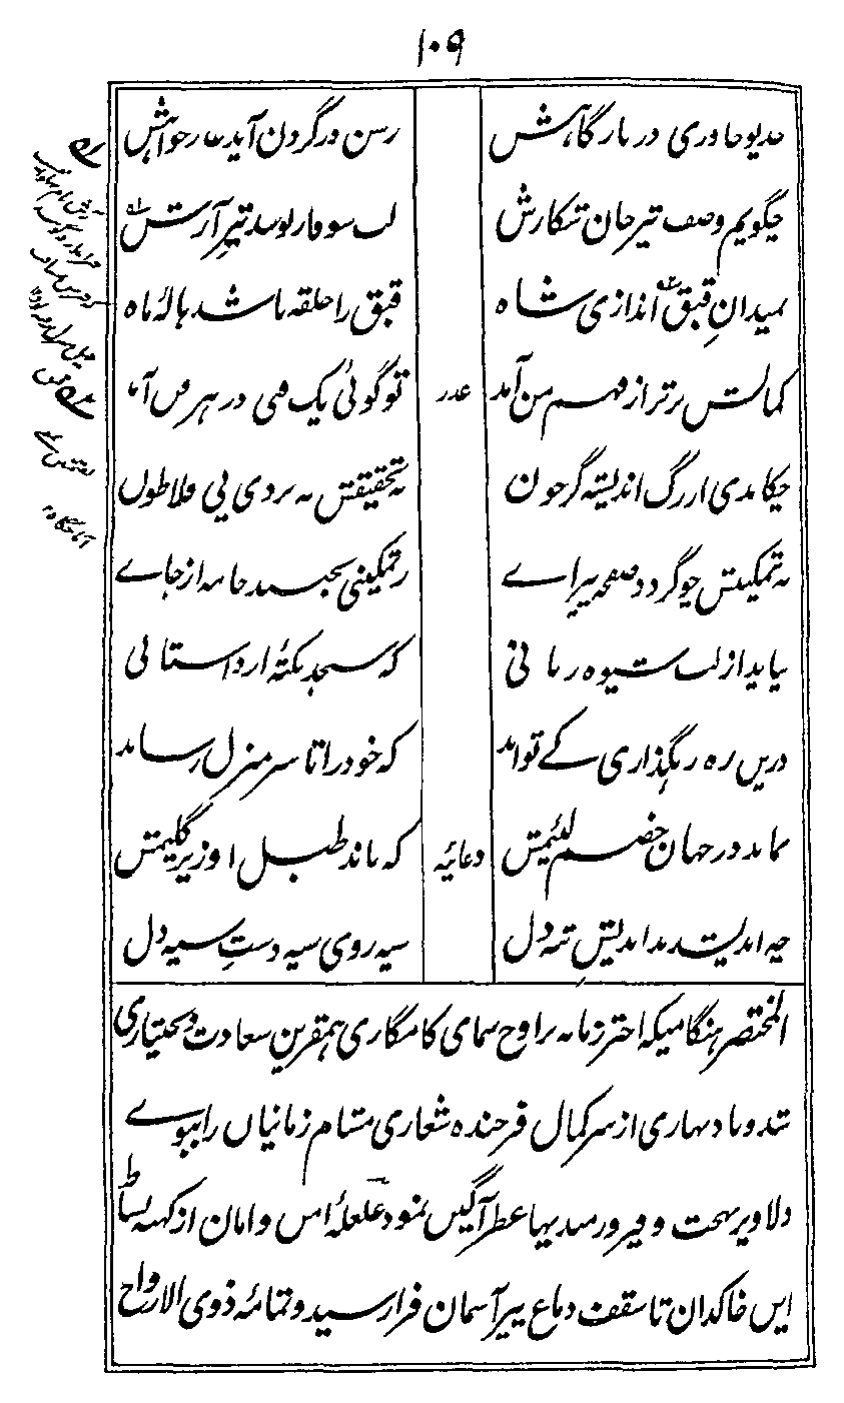 ۱۰۹
خدیو خاوری در بارگاهش رسن در گردن آید عار خواهش
چگویم وصف تیر جان شکارش لب سوفار بوسد تیر آرش
بمیدانِ قبق اندازی شاه قبق را حلقه باشد هالۂ ماه
کمالش برتر از فهم من آمد عذر تو گوئی یک فنی در هر فن آمد
چکاندی از رگ اندیشه گر خون به تحقیقش نه بردی پی فلاطون
به تمکینش چو گردد صفحه پیراے ز تمکینی نجنبد خامه از جاے
نیاید از لب شیوه زبانی که سنجد نکتۂ از داستانی
درین ره رهگذاری کے تواند که خود را تا سر منزل رساند
نماند در جهان خصم لئیمش دعائیه که ماند طبل او زیر گلیمش
چه اندیشد بداندیش تبه دل سیه روی سیه دستِ سیه دل
المختصر هنگامیکه اختر زمانه بر اوج سمای کامگاری همقرین سعادت و بختیاری
شد و باد بهاری از سر کمال فرخنده شعاری مشام زمانیان را ببوے
دلاویز بهجت و فیروزمندیها عطر آگیں نمود غلغلۂ امن و امان از کهنه بساط
ایں خاکدان تا سقف دماغ پیر آسمان فرا رسید و تمامۂ ذوی الارواح